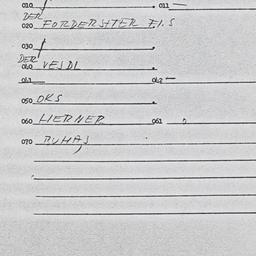 010 / 011 —
DER
020 FORDERSTER F.I.S
030 /
DER
040 VESDL
041 — 042 —
050 OKS
060 HERNER 061
070 RUHAS